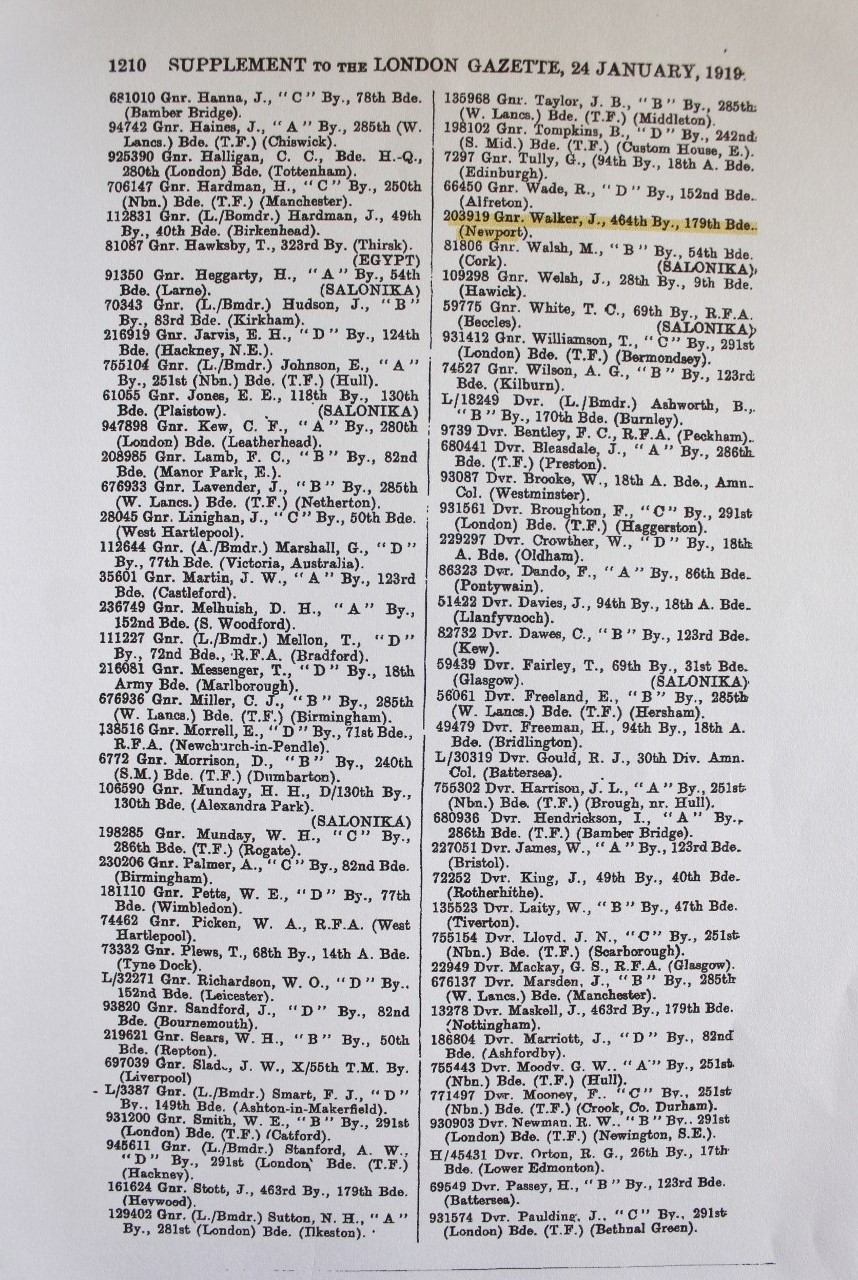 1210 SUPPLEMENT TO THE LONDON GAZETTE, 24 JANUARY, 1919.
681010 Gnr. Hanna, J., "C" By., 78th Bde.
(Bamber Bridge).
94742 Gnr. Haines, J., "A" By., 285th (W.
Lancs.) Bde. (T.F.) (Chiswick).
925390 Gnr. Halligan, C. C., Bde. H.-Q.,
280th (London) Bde. (Tottenham).
706147 Gnr. Hardman, H., "C" By., 250th
(Nbn.) Bde. (T.F.) (Manchester).
112831 Gnr. (L./Bomdr.) Hardman, J., 49th
By., 40th Bde. (Birkenhead).
81087 Gnr. Hawksby, T., 323rd By. (Thirsk).
(EGYPT)
91350 Gnr. Heggarty, H., "A" By., 54th
Bde. (Larne). (SALONIKA)
70343 Gnr. (L./Bmdr.) Hudson, J., "B"
By., 83rd Bde. (Kirkham).
216919 Gnr. Jarvis, E. H., "D" By., 124th
Bde. (Hackney, N.E.).
755104 Gnr. (L./Bmdr.) Johnson, E., "A"
By., 251st (Nbn.) Bde. (T.F.) (Hull).
61055 Gnr. Jones, E. E., 118th By., 130th
Bde. (Plaistow). (SALONIKA)
947898 Gnr. Kew, C. F., "A" By., 280th
(London) Bde. (Leatherhead).
208985 Gnr. Lamb, F. C., "B" By., 82nd
Bde. (Manor Park, E.).
676933 Gnr. Lavender, J., "B" By., 285th
(W. Lancs.) Bde. (T.F.) (Netherton).
28045 Gnr. Linighan, J., "C" By., 50th Bde.
(West Hartlepool).
112644 Gnr. (A./Bmdr.) Marshall, G., "D"
By., 77th Bde. (Victoria, Australia).
35601 Gnr. Martin, J. W., "A" By., 123rd
Bde. (Castleford).
236749 Gnr. Melhuish, D. H., "A" By.,
152nd Bde. (S. Woodford).
111227 Gnr. (L./Bmdr.) Mellon, T., "D"
By., 72nd Bde., R.F.A. (Bradford).
216081 Gnr. Messenger, T., "D" By., 18th
Army Bde. (Marlborough).
676936 Gnr. Miller, C. J., "B" By., 285th
(W. Lancs.) Bde. (T.F.) (Birmingham).
138516 Gnr. Morrell, E., "D" By., 71st Bde.,
R.F.A. (Newchurch-in-Pendle).
6772 Gnr. Morrison, D., "B" By., 240th
(S.M.) Bde. (T.F.) (Dumbarton).
106590 Gnr. Munday, H. H., D/130th By.,
130th Bde. (Alexandra Park).
(SALONIKA)
198285 Gnr. Munday, W. H., "C" By.,
286th Bde. (T.F.) (Rogate).
230206 Gnr. Palmer, A., "C" By., 82nd Bde.
(Birmingham).
181110 Gnr. Petts, W. E., "D" By., 77th
Bde. (Wimbledon).
74462 Gnr. Picken, W. A., R.F.A. (West
Hartlepool).
73332 Gnr. Plews, T., 68th By., 14th A. Bde.
(Tyne Dock).
L/32271 Gnr. Richardson, W. O., "D" By.,
152nd Bde. (Leicester).
93820 Gnr. Sandford, J., "D" By., 82nd
Bde. (Bournemouth).
219621 Gnr. Sears, W. H., "B" By., 50th
Bde. (Repton).
697039 Gnr. J. W., X/55th T.M. By.
(Liverpool)
L/3387 Gnr. (L./Bmdr.) Smart, F. J., "D"
By., 149th Bde. (Ashton-in-Makerfield).
931200 Gnr. Smith, W. E., "B" By., 291st
(London) Bde. (T.F.) (Catford).
945611 Gnr. (L./Bmdr.) Stanford, A. W.,
"D" By., 291st (London) Bde. (T.F.)
(Hackney).
161624 Gnr. Stott, J., 463rd By., 179th Bde.
(Heywood).
129402 Gnr. (L./Bmdr.) Sutton, N. H., "A"
By., 281st (London) Bde. (Ilkeston).
135968 Gnr. Taylor, J. B., "B" By., 285th
(W. Lancs.) Bde. (T.F.) (Middleton).
198102 Gnr. Tompkins, B., "D" By., 242nd
(S. Mid.) Bde. (T.F.) (Custom House, E.).
7297 Gnr. Tully, G., (94th By., 18th A. Bde.
(Edinburgh).
66450 Gnr. Wade, R., "D" By., 152nd Bde.
(Alfreton).
203919 Gnr. Walker, J., 464th By., 179th Bde.
(Newport).
81806 Gnr. Walsh, M., "B" By., 54th Bde.
(Cork). (SALONIKA)
109298 Gnr. Welsh, J., 28th By., 9th Bde.
(Hawick).
59775 Gnr. White, T. C., 69th By., R.F.A.
(Beccles). (SALONIKA)
931412 Gnr. Williamson, T., "C" By., 291st
(London) Bde. (T.F.) (Bermondsey).
74527 Gnr. Wilson, A. G., "B" By., 123rd
Bde. (Kilburn).
L/18249 Dvr. (L./Bmdr.) Ashworth, B.,
"B" By., 170th Bde. (Burnley).
9739 Dvr. Bentley, F. C., R.F.A. (Peckham).
680441 Dvr. Bleasdale, J., "A" By., 286th
Bde. (T.F.) (Preston).
93087 Dvr. Brooke, W., 18th A. Bde., Amn.
Col. (Westminster).
931561 Dvr. Broughton, F., "C" By., 291st
(London) Bde. (T.F.) (Haggerston).
229297 Dvr. Crowther, W., "D" By., 18th
A. Bde. (Oldham).
86323 Dvr. Dando, F., "A" By., 86th Bde.
(Pontywain).
51422 Dvr. Davies, J., 94th By., 18th A. Bde.
(Llanfyvnoch).
82732 Dvr. Dawes, C., "B" By., 123rd Bde.
(Kew).
59439 Dvr. Fairley, T., 69th By., 31st Bde.
(Glasgow). (SALONIKA)
56061 Dvr. Freeland, E., "B" By., 285th
(W. Lancs.) Bde. (T.F.) (Hersham).
49479 Dvr. Freeman, H., 94th By., 18th A.
Bde. (Bridlington).
L/30319 Dvr. Gould, R. J., 30th Div. Amn.
Col. (Battersea).
755302 Dvr. Harrison, J. L., "A" By., 251st
(Nbn.) Bde. (T.F.) (Brough, nr. Hull).
680936 Dvr. Hendrickson, I., "A" By.,
286th Bde. (T.F.) (Bamber Bridge).
227051 Dvr. James, W., "A" By., 123rd Bde.
(Bristol).
72252 Dvr. King, J., 49th By., 40th Bde.
(Rotherhithe).
135523 Dvr. Laity, W., "B" By., 47th Bde.
(Tiverton).
755154 Dvr. Lloyd. J. N., "C" By., 251st
(Nbn.) Bde. (T.F.) (Scarborough).
22949 Dvr. Mackay, G. S., R.F.A. (Glasgow).
676137 Dvr. Marsden, J., "B" By., 285th
(W. Lancs.) Bde. (Manchester).
13278 Dvr. Maskell, J., 463rd By., 179th Bde.
(Nottingham).
186804 Dvr. Marriott, J., "D" By., 82nd
Bde. (Ashfordby).
755443 Dvr. Moody. G. W., "A" By., 251st
(Nbn.) Bde. (T.F.) (Hull).
771497 Dvr. Mooney, F., "C" By., 251st
(Nbn.) Bde. (T.F.) (Crook, Co. Durham).
930903 Dvr. Newman, R. W., "B" By., 291st
(London) Bde. (T.F.) (Newington, S.E.).
H/45431 Dvr. Orton, R. G., 26th By., 17th
Bde. (Lower Edmonton).
69549 Dvr. Passey, H., "B" By., 123rd Bde.
(Battersea).
931574 Dvr. Paulding, J., "C" By., 291st
(London) Bde. (T.F.) (Bethnal Green).